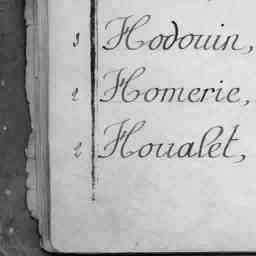 3 Hodouin,
2 Homerie,
2 Houalet,